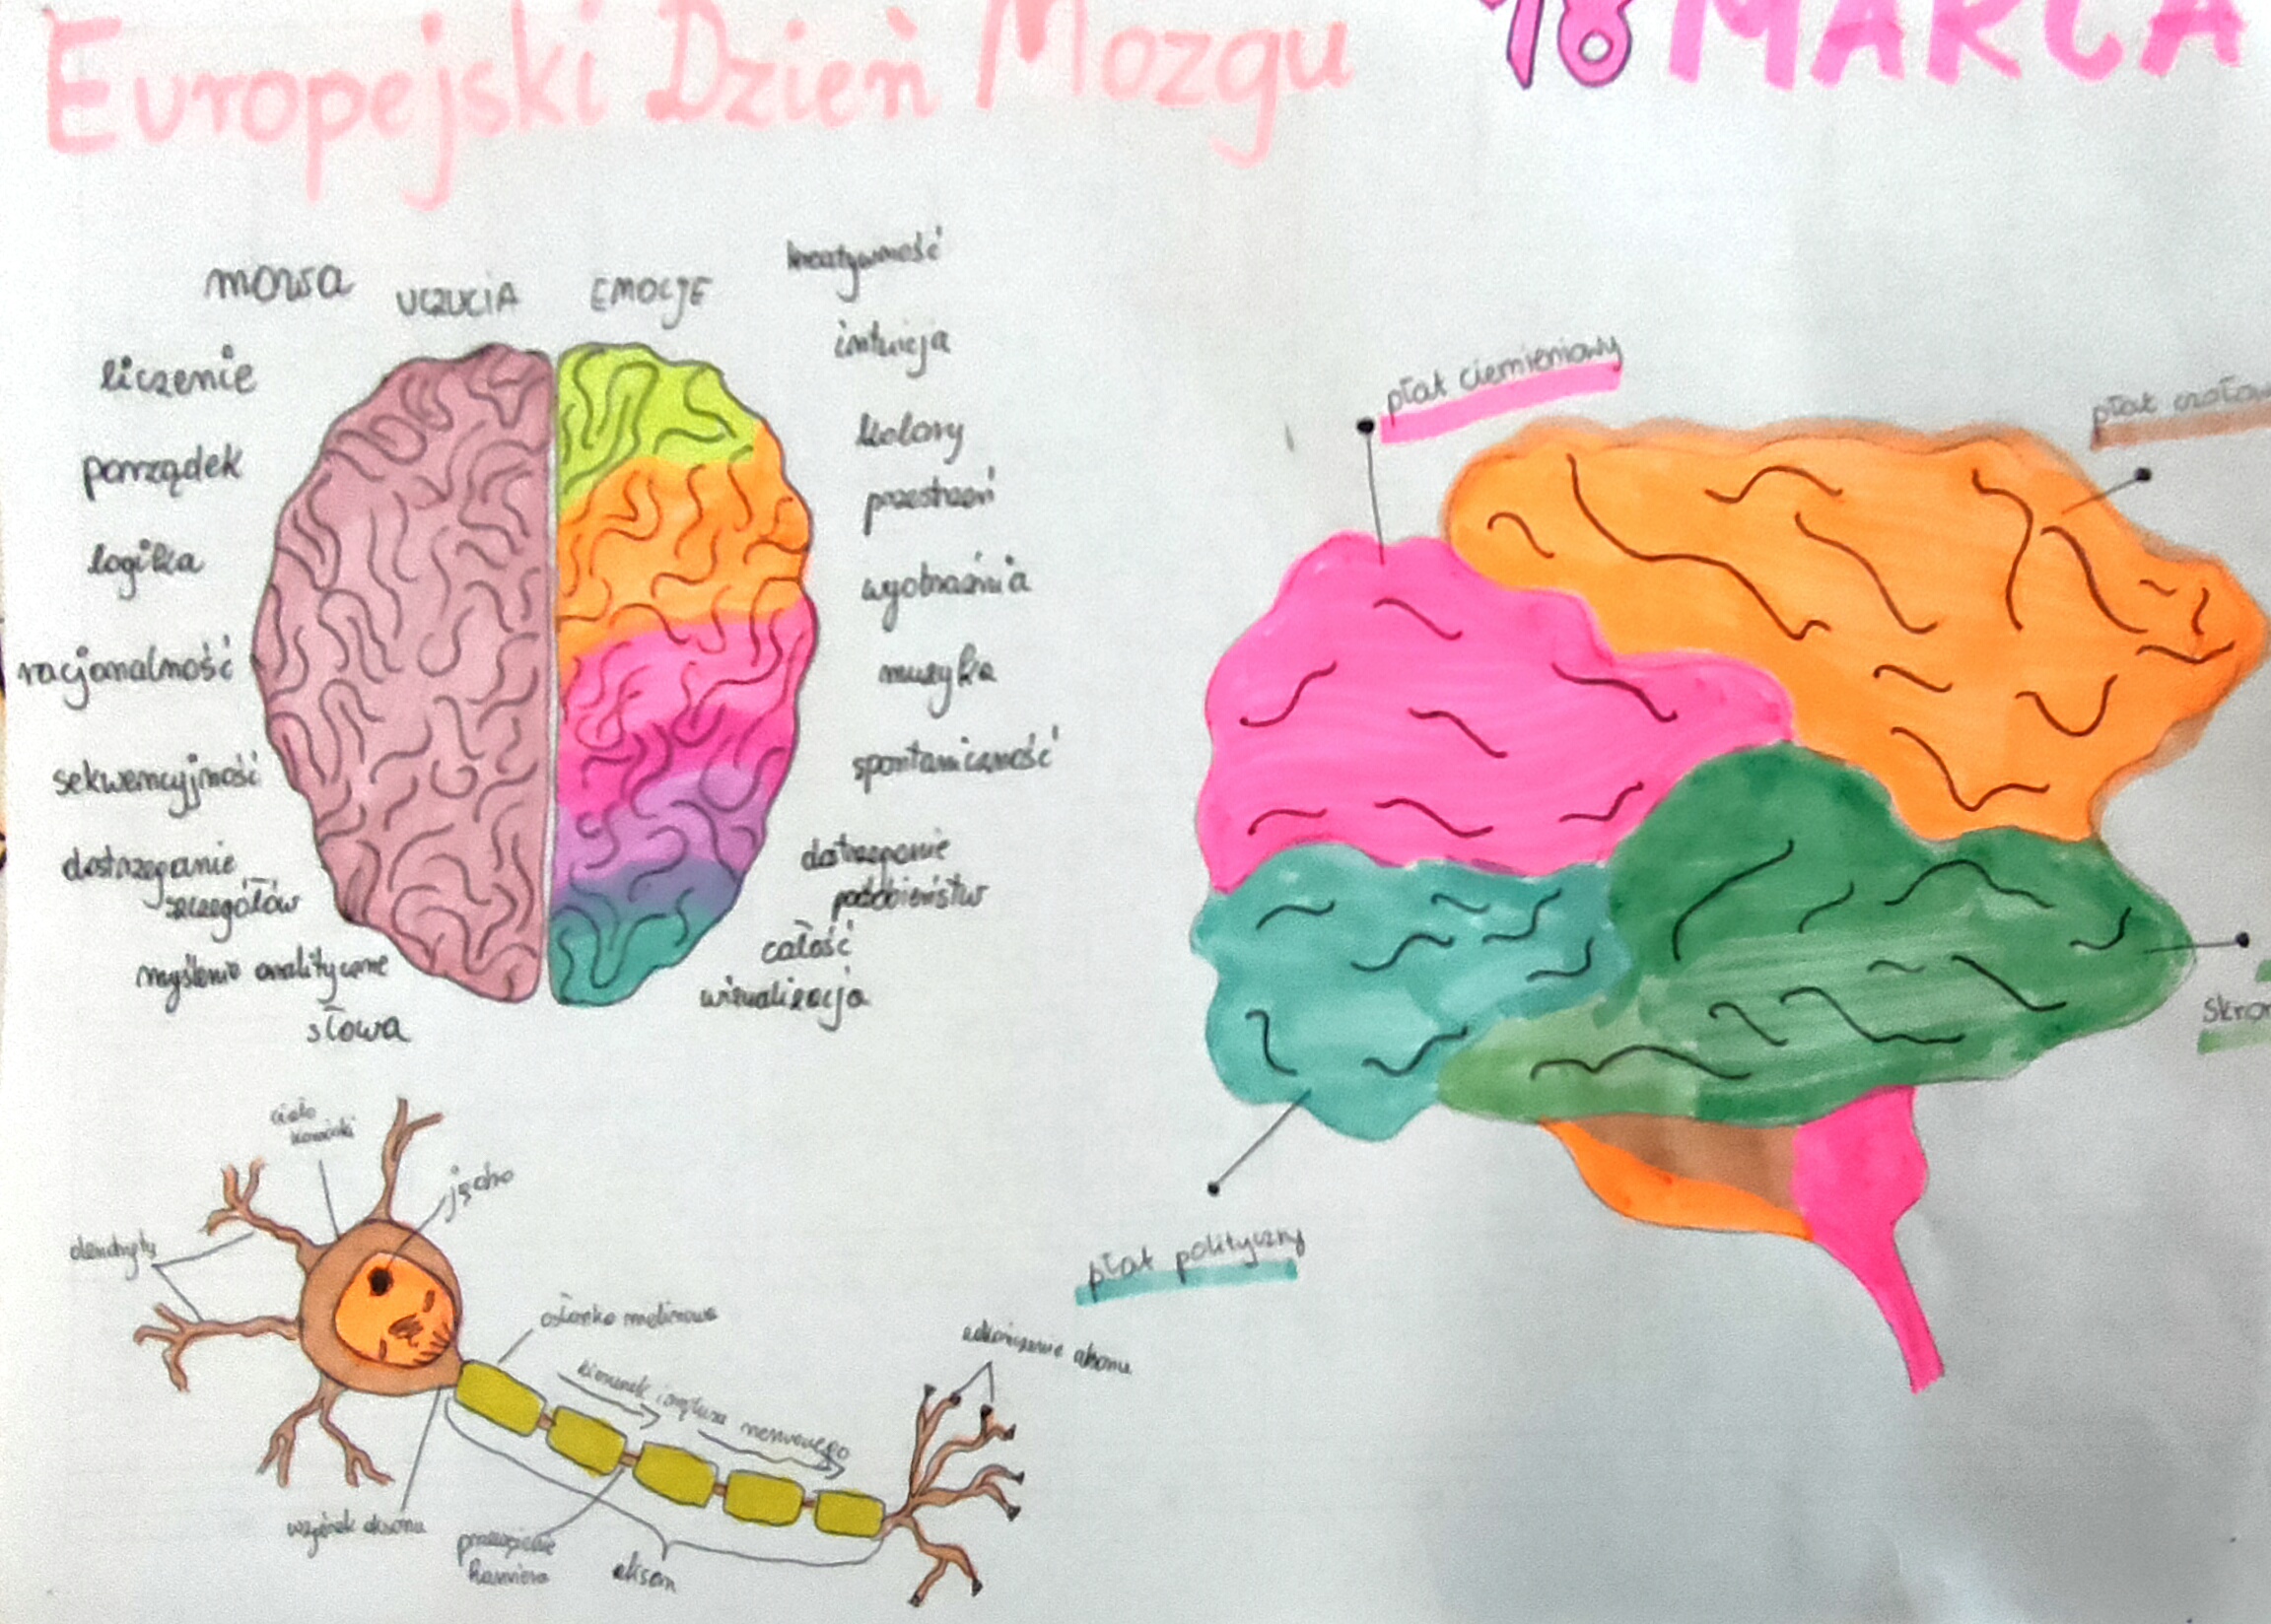 Europejski Dzień Mozgu
18 MARCA
mowa
UCZUCIA
EMOCJE
kreatywność
liczenie
intuicja
porządek
kolory
logika
przestrzeń
racjonalność
wyobraźnia
sekwencyjność
muzyka
dostrzeganie
szczegółów
spontaniczność
myślenie analityczne
dostrzeganie
podobieństw
słowa
całość
wizualizacja
płat ciemieniowy
płat czołow
skron
płat polityczny
ciało
komórki
jądro
dendryty
osłonka mielinowa
kierunek impulsu nerwowego
zakończenie aksonu
wzgórek aksonu
przewężenie
Ranviera
akson